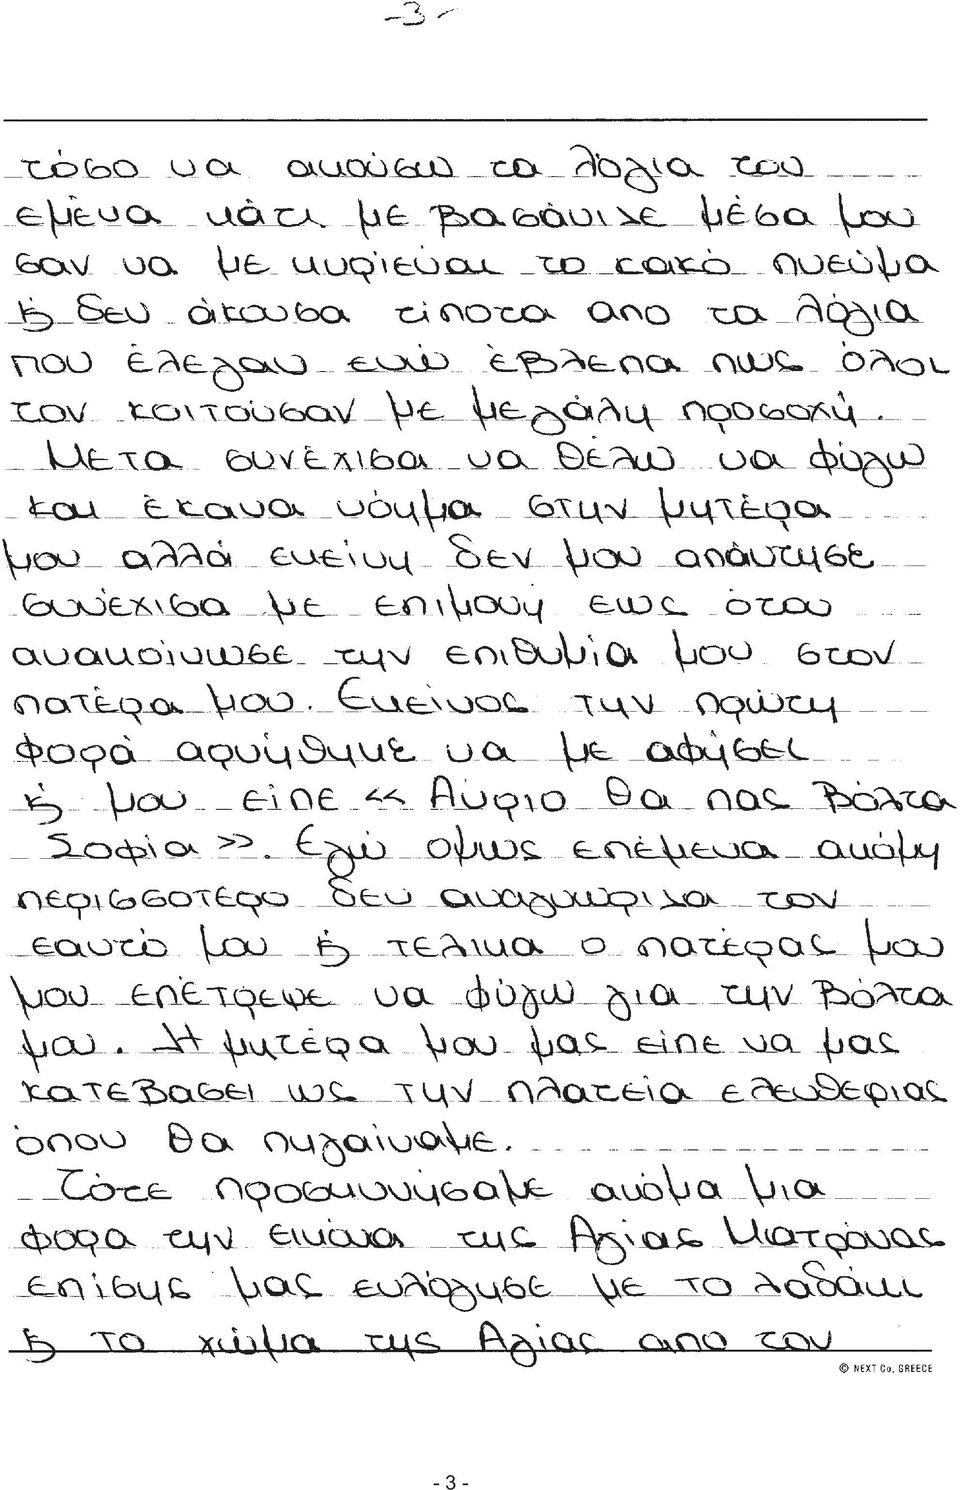 -3-
τόσο να ακούσω τα λόγια του
εμένα κάτι με βασάνιζε μέσα μου
σαν να με κυρίευαι το κακό πνεύμα
ϗ δεν άκουσα τίποτα απο τα λόγια
που έλεγαν ενώ έβλεπα πως όλοι
τον κοιτούσαν με μεγάλη προσοχή.
Μετα συνέχισα να θέλω να φύγω
και έκανα νόημα στην μητέρα
μου αλλά εκείνη δεν μου απάντησε
συνέχισα με επιμονή εως ότου
ανακοίνωσε την επιθυμία μου στον
πατέρα μου. Εκείνος την πρώτη
φορά αρνήθηκε να με αφήσει
ϗ μου είπε << Αύριο θα πας βόλτα
Σοφία >>. Εγώ ομως επέμενα ακόμη
περισσοτερο δεν αναγνώριζα τον
εαυτό μου ϗ τελικα ο πατέρας μου
μου επέτρεψε να φύγω για την βόλτα
μου. Η μητέρα μου μας είπε να μας
κατεβάσει ως την πλατεία ελευθερίας
όπου θα πηγαίναμε.
Τότε προσκυνήσαμε ακόμα μια
φορα την εικόνα της Αγίας Ματρόνας
επίσης μας ευλόγησε με το λαδάκι
ϗ το χώμα της Αγίας απο τον
© NEXT Co. GREECE
- 3 -